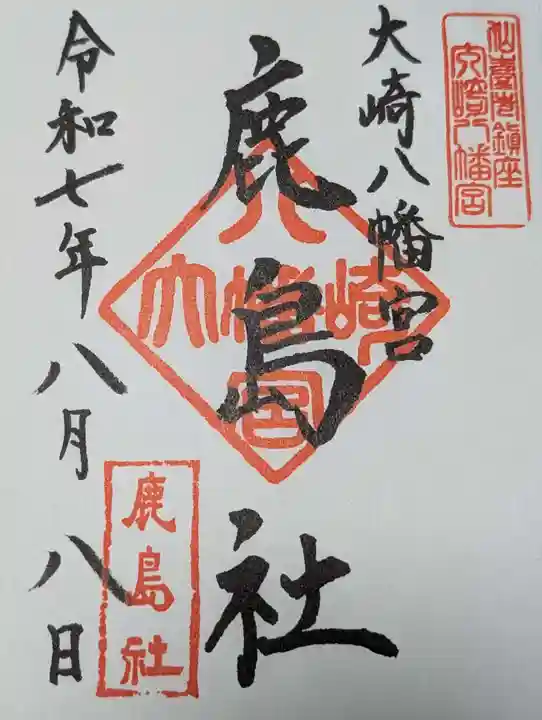 仙臺總鎮座
大崎八幡宮
大崎八幡宮
鹿島社
八
大幡崎
宮
鹿島社
令和七年八月八日